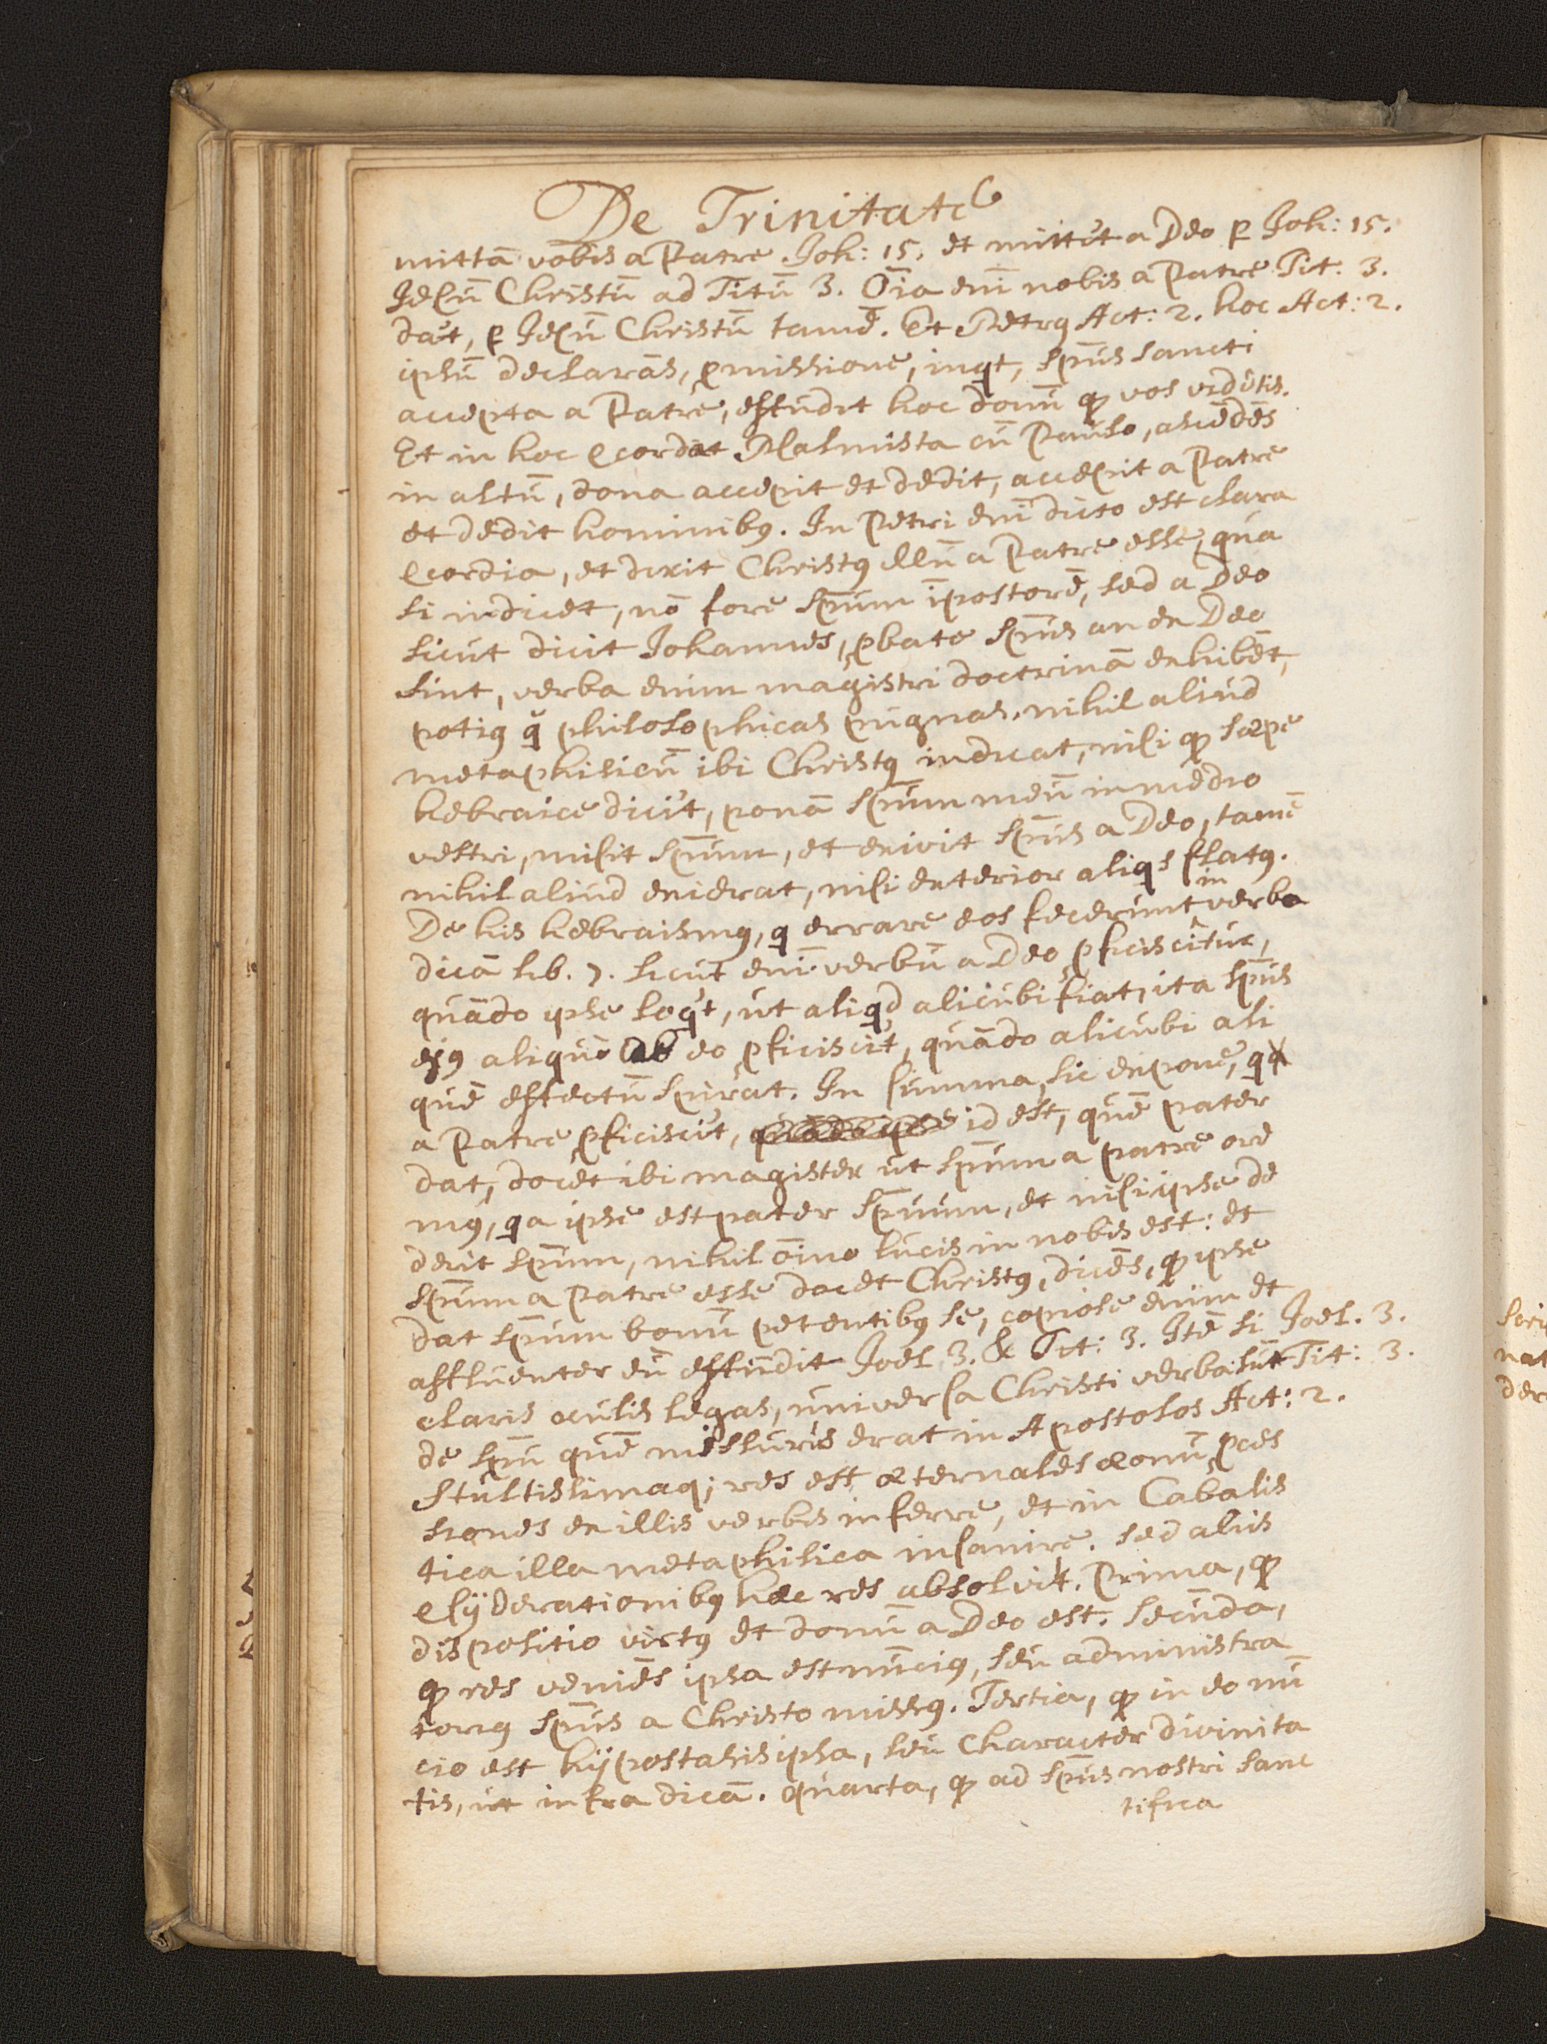 De Trinitate
mittā vobis a Patre Joh: 15. et mittit̄ a Deo ꝑ Joh: 15.
Jesū Christū ad Titū 3. Oīa enī nobis a Patre Tit: 3.
dat̄, ꝑ Jesū Christū tamē. Et Petrꝰ Act: 2. hoc Act: 2.
ipsū declarās, ꝓmissione, inqt, spūs sancti
accepta a Patre, effudit hoc donū ꝙ vos videtis.
Et in hoc ɔcordat Psalmista cū Paulo, ascēdēs
in altū, dona accepit et dedit, accepit a Patre
et dedit hominibꝰ. In Petri enī dicto est clara
ɔcordia, et dixit Christꝰ illū a Patre esse, qua
si indicet, nō fore spūm īpostorē, sed a Deo
sicut dicit Johannes, ꝓbate spūs an ex Deo
sint, verba enim magistri doctrinā exhibēt,
potiꝰ q̄ philosophicas pugnas, nihil aliud
metaphisicū ibi Christꝰ indicat, nisi ꝙ sæpe
hebraice dicit̄, ponā spūum meū in medio
vestri, misit spūum, et exivit spūs a Deo, tamē
nihil aliud exierat, nisi exterior aliqs flatꝰ.
De his hebraismꝰ, q errare eos fecerunt in verbo
dicā lib. 7. sicut enī verbū a Deo ꝓficiscitur,
quādo ipse loqt̄, ut aliqd alicubi fiat, ita spūs
ejꝰ aliquō ab eo ꝓficiscit̄, quādo alicubi ali
quē effectū spirat. In summa sic expone, qd
a Patre ꝓficiscit̄, id est, quē pater
dat, docet ibi magister ut spūum a patre ore
mꝰ, qa ipse est pater spūum, et nisi ipse de
derit spūm, nihil oīno lucis in nobis est: et
spūum a Patre esse docet Christꝰ, dicēs, ꝙ ipse
dat spūum bonū petentibꝰ se, copiose enim et
affluenter eū effundit Joel 3. & Tit: 3. Itē si Joel. 3.
claris oculis legas, universa Christi verba sūt Tit: 3.
de spū quē missurus erat in Apostolos Act: 2.
Stultissimaq; res est æternales æonū ꝓces
siones ex illis verbis inferre, et in Cabalis
tica illa metaphisica insanire. sed aliis
ɔsÿderationibꝰ hæc res absolvit̄. Prima, ꝙ
dispositio virtꝰ et donū a Deo est. Secunda,
ꝙ res veniēs ipsa est nūciꝰ, seu administra
toriꝰ spūs a Christo missꝰ. Tertia, ꝙ in eo nū
cio est hÿpostasis ipsa, seu Character divinita
tis, ut infra dicā. Quarta, ꝙ ad spūs nostri sanc
tifica